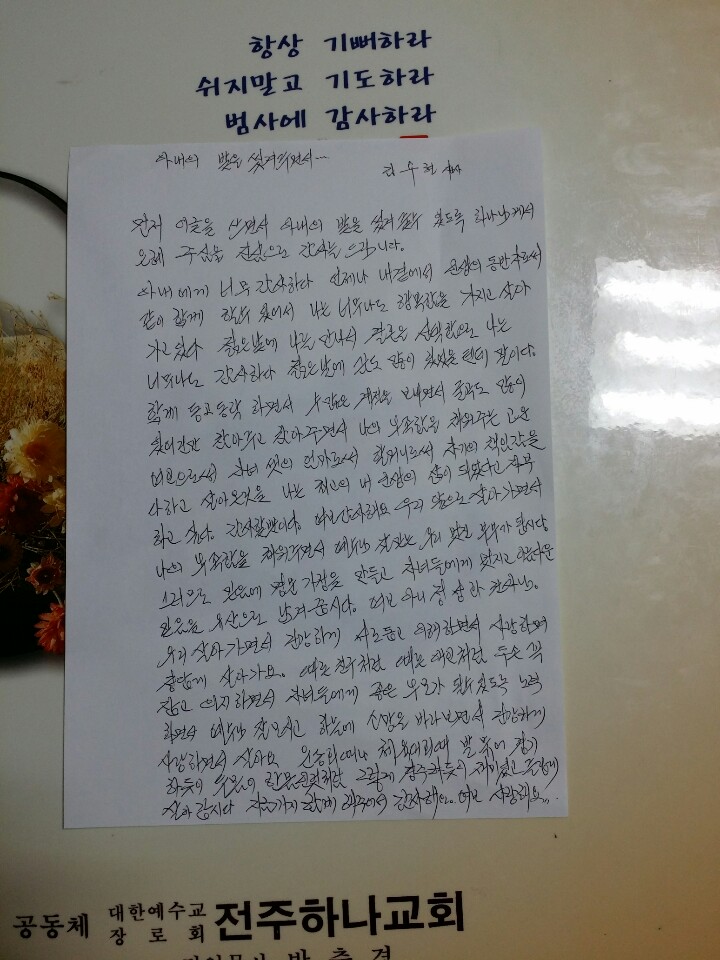 항상 기뻐하라
쉬지말고 기도하라
범사에 감사하라
아내의 발을 씻겨주면서...
먼저 이글을 쓰면서 아내의 발을 씻겨 줄수 있도록 하나님께서
은혜 주심을 진심으로 감사를 드립니다.
아내에게 너무 감사하다 언제나 내곁에서 인생의 동반자로써
같이 함께 할수 있어서 나는 너무나도 행복감을 가지고 살아
가고 있다 젊은날에 나를 만나서 결혼을 선택함으로 나는
너무나도 감사하다 젊은날에 꿈도 많이 있었을 텐데 말이다.
함께 동고동락 하면서 수많은 계절을 보내면서 굴곡도 많이
있어지만 참아주고 참아주면서 나의 부족함을 채워주는 고운
여인으로서 자녀 셋의 엄마로서 할머니로서 자기의 책임감을
다하고 살아온것을 나는 최고의 내 인생의 삶이 되었다고 자부
하고 싶다. 감사할뿐이다. 여보 감사해요 우리 앞으로 살아가면서
나의 부족함을 채워주면서 예수님 잘 믿는 우리 부부가 됩시다
그러므로 믿음에 명문 가정을 만들고 자녀들에게 멋지고 아름다운
믿음을 유산으로 남겨 줍시다. 여보
우리 살아가면서 건강하게 서로 돕고 이해하면서 사랑하며
즐겁게 살아가요. 때론 친구처럼 때론 애인처럼 두손 꼭
잡고 의지하면서 자녀들에게 좋은 부모가 될수 있도록 노력
하면서 예수님 잘 모시고 하늘에 소망을 바라보면서 건강하게
사랑하면서 살아요
하듯이 그렇게 재미있고 즐겁게
살아 갑시다 지금까지 함께 해주어서 감사해요.. 여보 사랑해요..
공동체 대한예수교장로회 전주하나교회